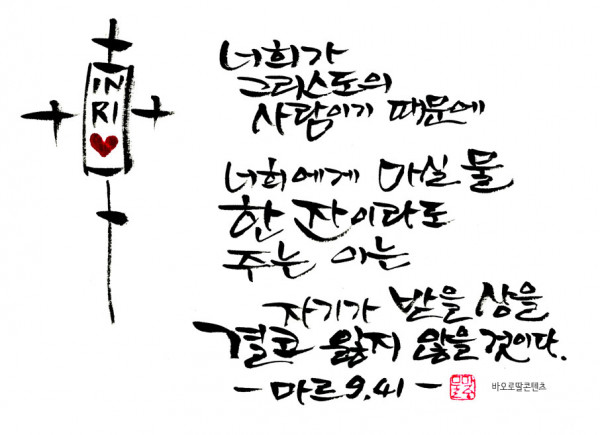 INRI
너희가
그리스도의
사람이기 때문에
너희에게 마실 물
한 잔이라도
주는 이는
자기가 받을 상을
결코 잃지 않을 것이다.
- 마르 9,41 -
바오로딸콘텐츠